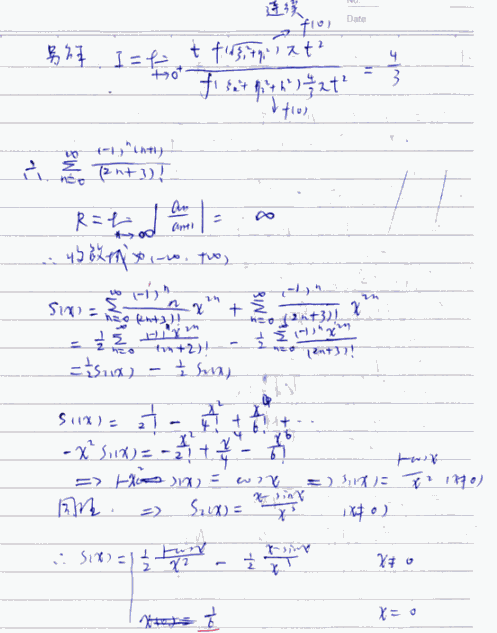 Date
连续
f(0)
另解. I = lim_{t→0⁺} t f(√(ξ₁²+η₁²)) π t² / f(ξ₂²+η₂²+h²) 4/3 π t² = 4/3
↓ f(0)
六. ∑_{n=0}^{∞} (-1)ⁿ(n+1) / (2n+3)!
R = lim_{n→∞} |aₙ / aₙ₊₁| = ∞
∴ 收敛域为 (-∞, +∞)
S(x) = ∑_{n=0}^{∞} (-1)ⁿ n / (2n+3)! x²ⁿ + ∑_{n=0}^{∞} (-1)ⁿ / (2n+3)! x²ⁿ
= 1/2 ∑_{n=0}^{∞} (-1)ⁿ x²ⁿ / (2n+2)! - 1/2 ∑_{n=0}^{∞} (-1)ⁿ x²ⁿ / (2n+3)!
= 1/2 S₁(x) - 1/2 S₂(x)
S₁(x) = 1/2! - x²/4! + x⁴/6! + ⋯
-x² S₁(x) = -x²/2! + x⁴/4 - x⁶/6!
⇒ 1-x² S₁(x) = cos x ⇒ S₁(x) = (1-cos x)/x² (x≠0)
同理. ⇒ S₂(x) = (x-sin x)/x³ (x≠0)
∴ S(x) = 1/2 (1-cos x)/x² - 1/2 (x-sin x)/x³ x≠0
1/6 x=0